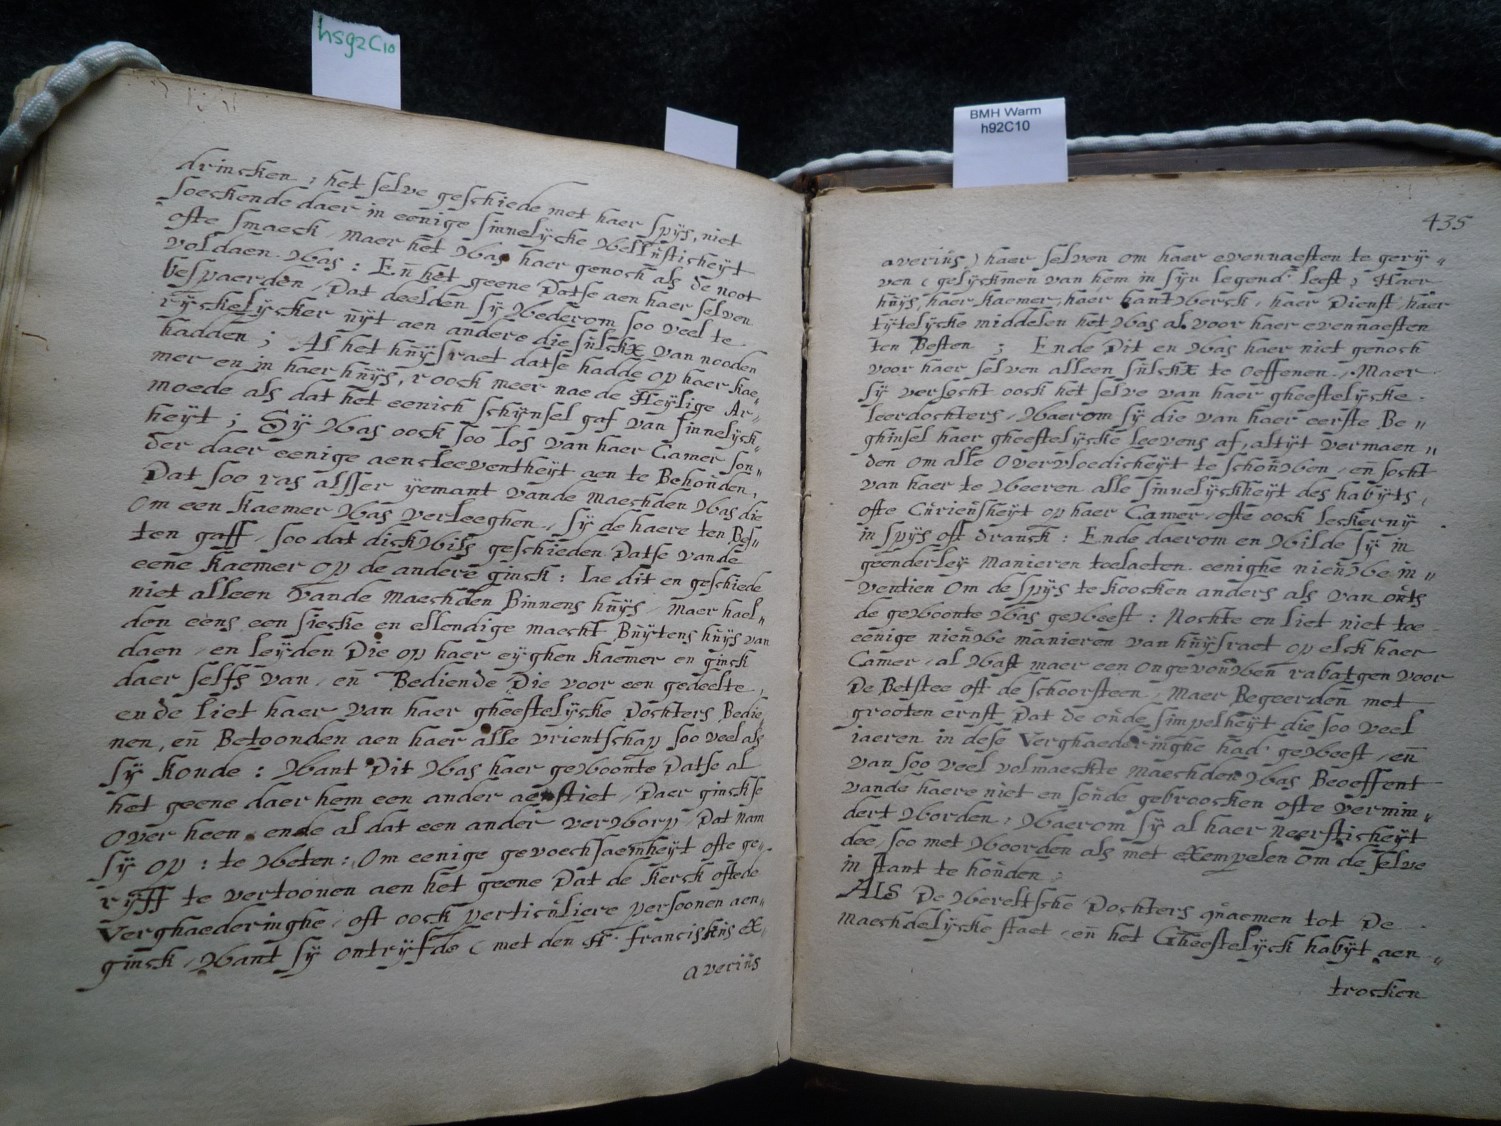 hsg2C10
BMH Warm
h92C10
drincken; het selve geschiede met haer spijs, niet
soeckende daer in eenige sinnelijcke wellusticheijt
ofte smaeck, maer het was haer genoch als de noot
voldaen was: En het geene datse aen haer selven
bespaerden, dat deelden sij wederom soo veel te
rijckelijcker uijt aen andere die sulckx van nooden
hadden; Als het huijsraet datse hadde op haer kae„
mer en in haer huijs, roock meer nae de Heijlige Ar„
moede als dat het eenich schijnsel gaf van sinnelijck„
heijt; Sij was oock soo los van haer Camer son„
der daer eenige aencleeventheijt aen te behouden,
Dat soo ras alsser ijemant vande maechden was die
om een kaemer was verleeghen, sij de haere ten bes„
ten gaff, soo dat dickwils geschieden datse vande
eene kaemer op de andere ginck: Iae dit en geschiede
niet alleen vande maechden binnens huijs, maer hael„
den eens een siecke en ellendige maecht buijtens huijs van
daen, en leijden die op haer eijghen kaemer en ginck
daer selfs van, en bediende die voor een gedeelte,
ende liet haer van haer gheestelijcke dochters bedie„
nen, en betoonden aen haer alle vrientschap soo veel als
sij konde: want dit was haer gewoonte datse al
het geene daer hem een ander aenstiet, daer ginckse
over heen, ende al dat een ander verworp, dat nam
sij op: te weten: om eenige gevoechsaemheijt ofte ge„
rijff te vertoonen aen het geene dat de kerck ofte de
Verghaederinghe, oft oock perticuliere persoonen aen„
ginck, want sij ontrijfde (met den H. franciskus Ex„
averius
435
averius) haer selven om haer evennaesten te gerij„
ven (gelijckmen van hem in sijn legend leest; Haer
huijs, haer kaemer, haer hantwerck, haer dienst, haer
tijtelijcke middelen het was al voor haer evennaesten
ten besten; Ende dit en was haer niet genoch
voor haer selven alleen sulckx te oeffenen, Maer
sij versocht oock het selve van haer gheestelijcke
leerdochters, waerom sij die van haer eerste be„
ghinsel haer gheestelijcke leevens af, altijt vermaen„
den om alle overvloedicheijt te schouwen, en socht
van haer te weeren alle sinnelijckheijt des habijts,
ofte curieusheijt op haer Camer, ofte oock leckernij
in spijs oft dranck: Ende daerom en wilde sij in
geenderleij manieren toelaeten eenighe nieuwe in„
ventien om de spijs te koocken anders als van outs
de gewoonte was geweest: Nochte en liet niet toe
eenige nieuwe manieren van huijsraet op elck haer
Camer, al wast maer een ongevouwen rabatgen voor
de betstee oft de schoorsteen, Maer begeerden met
grooten ernst dat de oude simpelheijt die soo veel
iaeren in dese Verghaederinghe had geweest, en
van soo veel volmaeckte maechden was beoeffent
vande haere niet en soude gebroocken ofte vermin„
dert worden; waerom sij al haer neersticheijt
dee, soo met woorden als met exempelen om de selve
in stant te houden;
Als de wereltsche dochters quaemen tot de
maechdelijcke staet, en het Gheestelijck habijt aen„
trocken